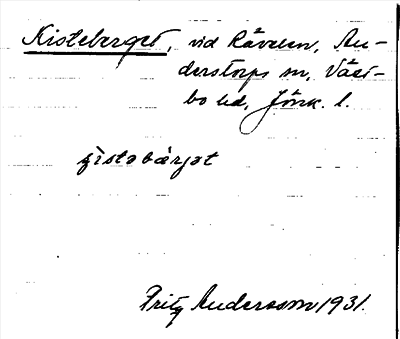 Kisteberget, vid Rävelen, An-
derstorps sn, Väst-
bo hd, Jönk. l.
çistabärjat
Fritz Andersson 1931.